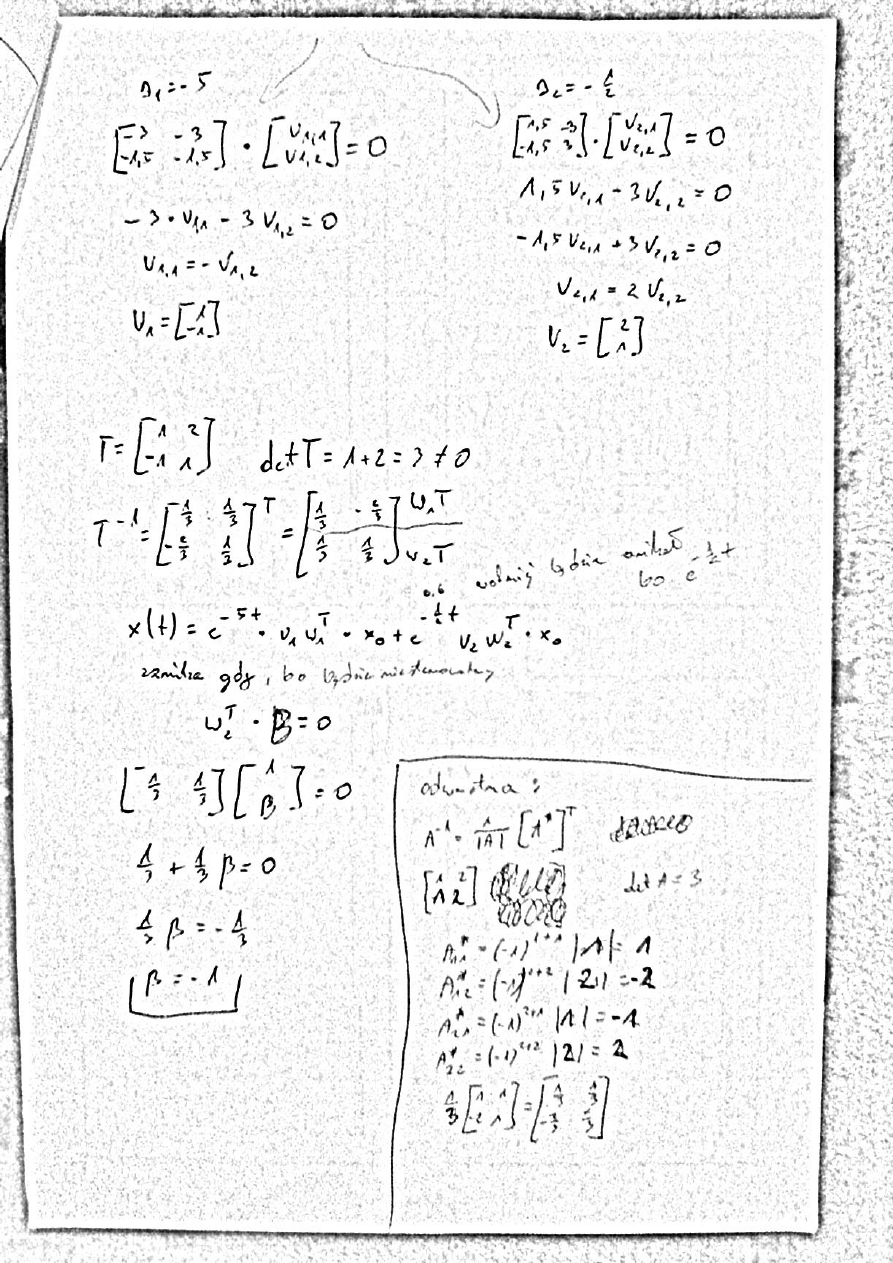 s₁ = -5
[-3 -3; -1,5 -1,5] · [v₁,₁; v₁,₂] = 0
-3·v₁,₁ - 3v₁,₂ = 0
v₁,₁ = -v₁,₂
v₁ = [1; -1]
s₂ = -1/2
[1,5 -3; -1,5 3] · [v₂,₁; v₂,₂] = 0
1,5v₂,₁ - 3v₂,₂ = 0
-1,5v₂,₁ + 3v₂,₂ = 0
v₂,₁ = 2v₂,₂
v₂ = [2; 1]
T = [1 2; -1 1] det T = 1+2 = 3 ≠ 0
T⁻¹ = [1/3 1/3; -2/3 1/3]ᵀ = [1/3 -2/3; 1/3 1/3] w₁ᵀ v₂ᵀ
będzie
bo e^(-1/2 t)
x(t) = e^(-5t) · v₁w₁ᵀ · x₀ + e^(-1/2 t) v₂w₂ᵀ · x₀
gdy, bo będzie
w₂ᵀ · β = 0
[1/3 1/3] [1; β] = 0
1/3 + 1/3 β = 0
1/3 β = -1/3
β = -1
odwrotna:
A⁻¹ = 1/|A| [A*]ᵀ
[1 2; 1 2] det A = 3
A₁₁* = (-1)¹⁺¹ |1| = 1
A₁₂* = (-1)¹⁺² |2| = -2
A₂₁* = (-1)²⁺¹ |1| = -1
A₂₂* = (-1)²⁺² |2| = 2
1/3 [1 1; -2 1] = [1/3 1/3; -2/3 1/3]